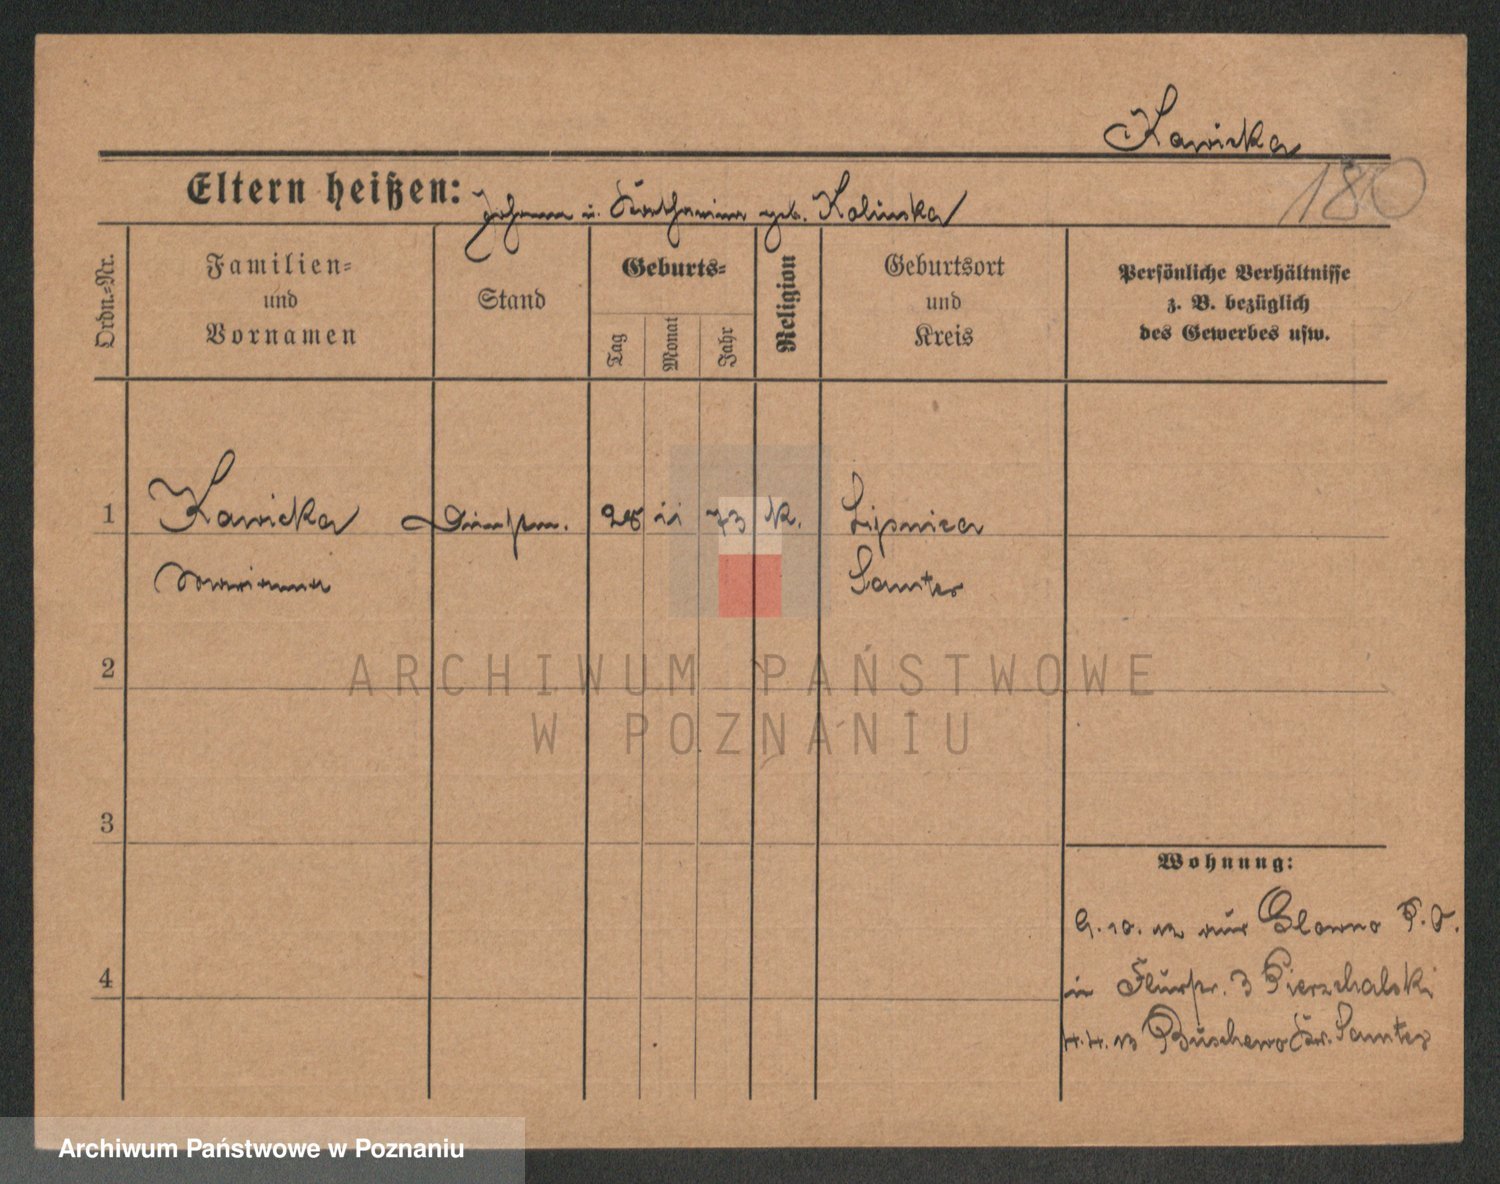 Kawicka
180
Eltern heißen: Johann u. Katharina geb. Kalinska
Ordn.-Nr.
Familien-
und
Vornamen
Stand
Geburts-
Tag
Monat
Jahr
Religion
Geburtsort
und
Kreis
Persönliche Verhältnisse
z. B. bezüglich
des Gewerbes usw.
1 Kawicka 11 73 K. Lipnica
Marianna Samter
2
ARCHIWUM PAŃSTWOWE
W POZNANIU
3
Wohnung:
9. 10. 12 Glowno P. O.
in Flurstr. 3 Pierzchalski
4
4. 4. 13 Buschewo Kr. Samter
Archiwum Państwowe w Poznaniu